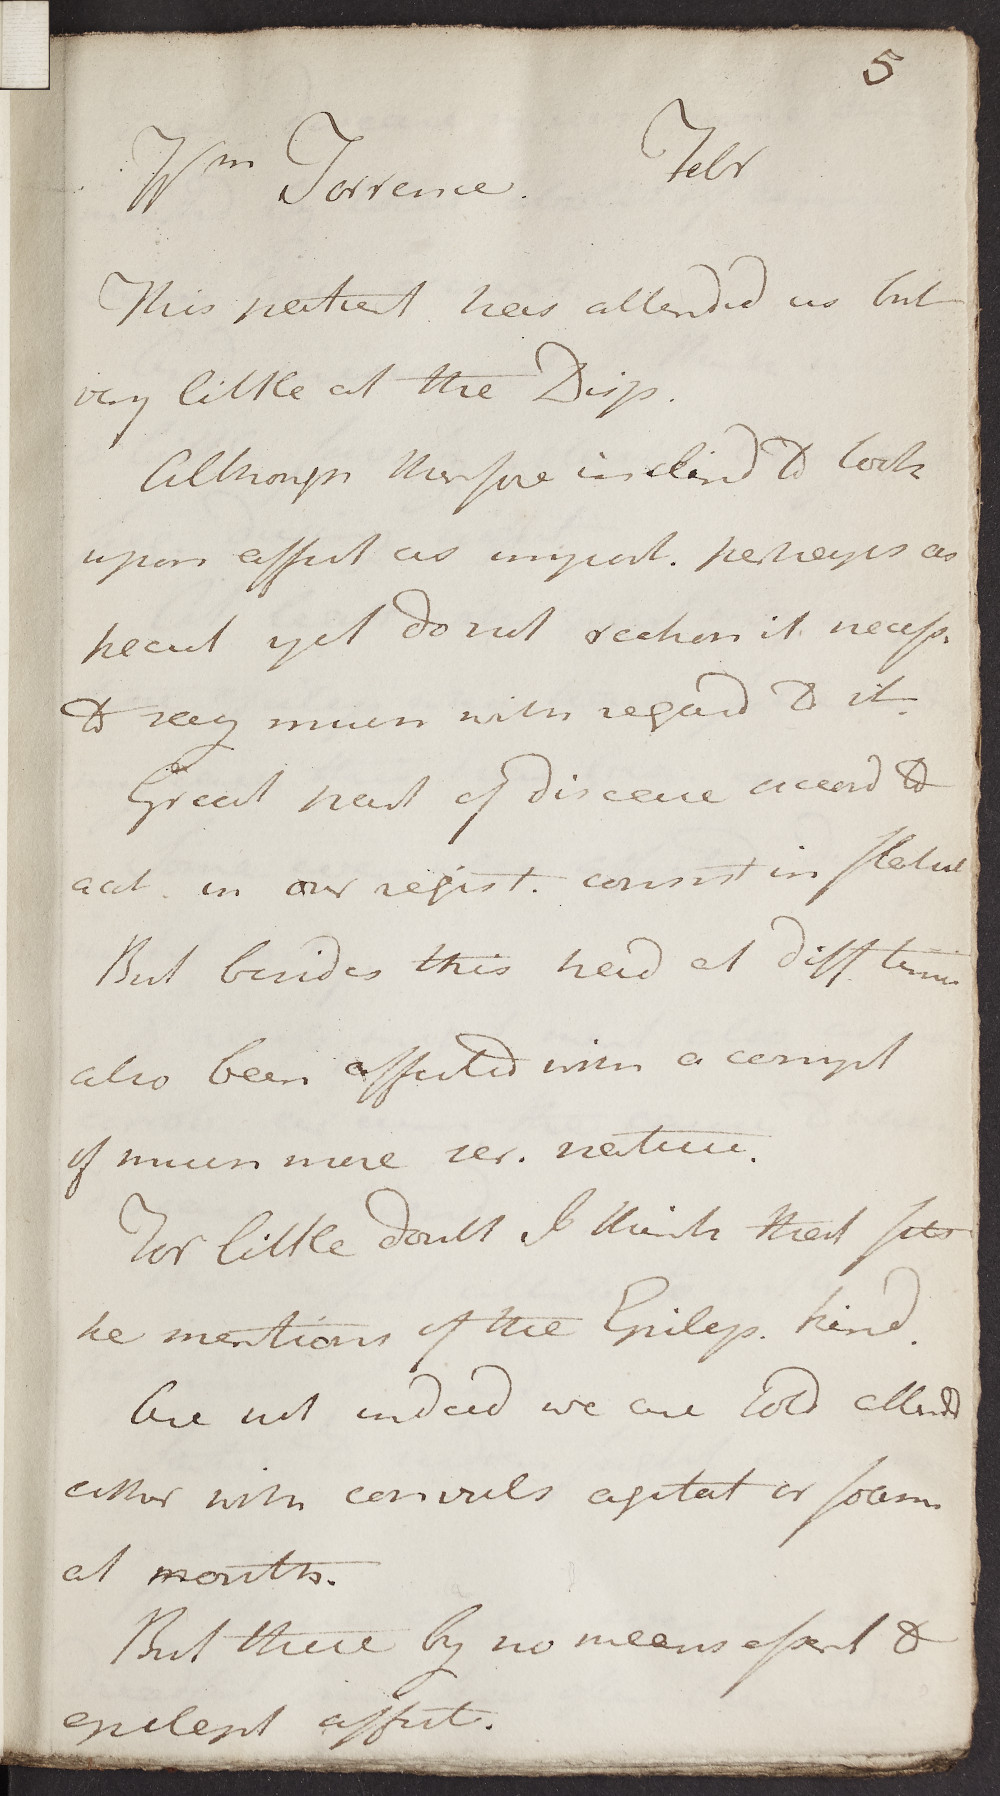 5
Wm Torrence. Febr
This patient has attended us but
very little at the Disp.
Although therfore inclind to look
upon affect as import. perhaps as
 yet do not reckon it necess.
to say much with regard to it.
Great part of disease accord to
act. in our regist. consist in flatul
But besides this head at diff. times
also been affected with a compt
of much more ser. nature.
For little doubt I think that fits
he mentions of the Epilep. kind.
Are not indeed we are told attendd
either with convuls agitat or foam
at mouth.
But these by no means essent to
epilept affect.